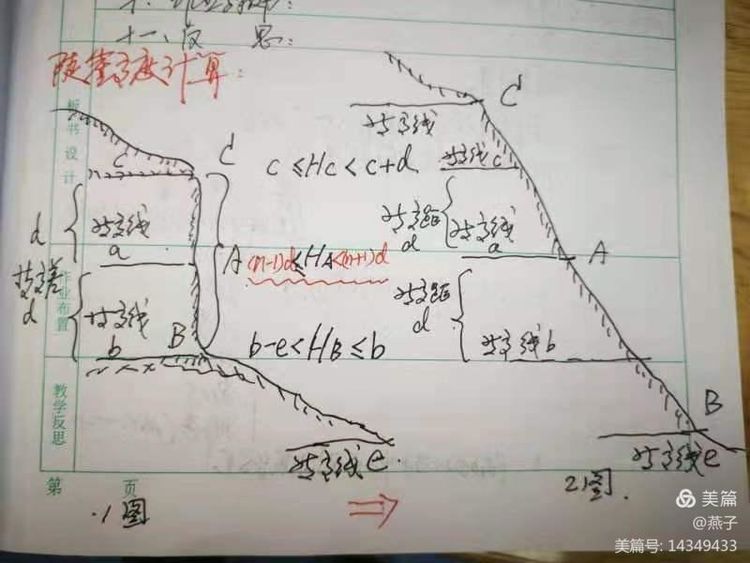 十一、反 思:
陡崖高度计算:
板书设计
C
C
等高线
c≤Hc<c+d
等高线c
d
等高线
a
等高距
d
等高线
a
A
(n-1)d≤HA<(n+1)d
A
等高差
d
作业布置
等高线
b
B
b-e<HB≤b
等高距
d
等高线b
教学反思
B
等高线e
等高线e
第 页
1图
⇒
2图.
美篇
@燕子
美篇号: 14349433